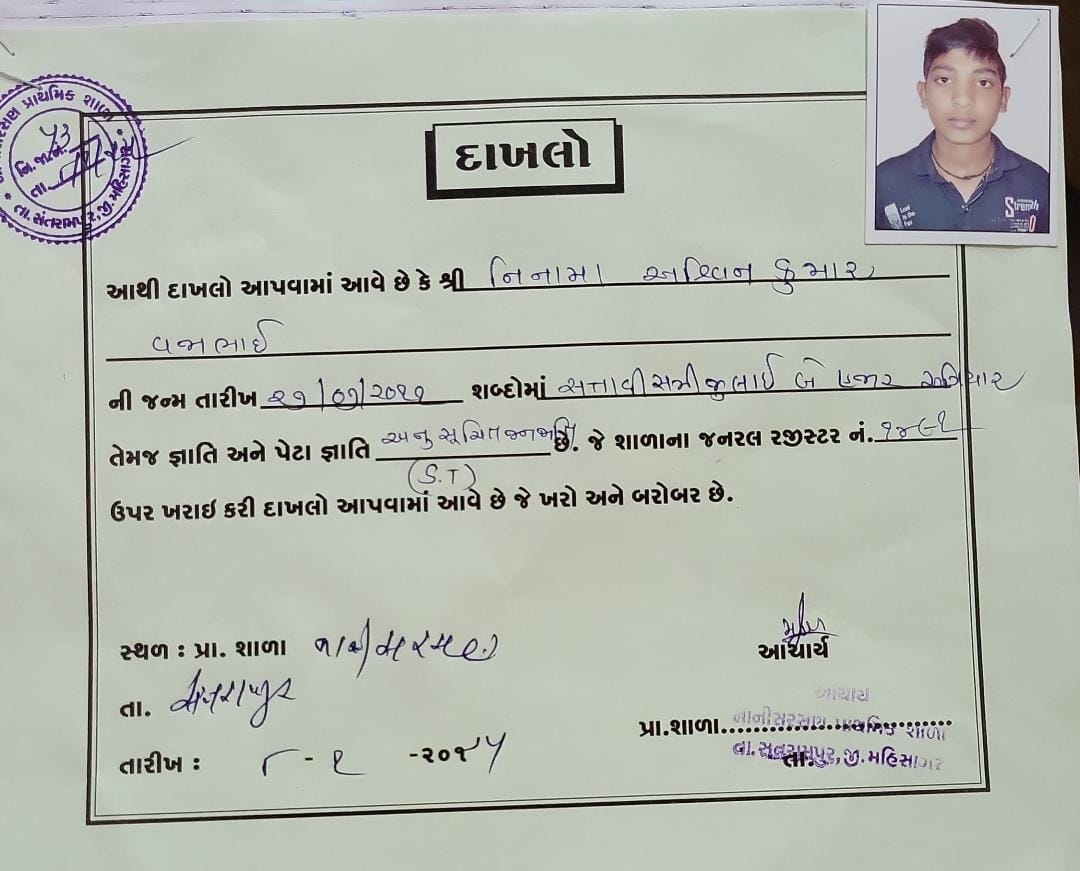 પ્રાથમિક શાળા
નિ. જા.નં. 53
તા.
તા. સંતરામપુર, જી. મહિસાગર
દાખલો
Strength
આથી દાખલો આપવામાં આવે છે કે શ્રી નિનામા અશ્વિન કુમાર
વજાભાઈ
ની જન્મ તારીખ ૨૭/૦૭/૨૦૧૧ શબ્દોમાં સત્તાવીસમી જુલાઈ બે હજાર અગિયાર
તેમજ જ્ઞાતિ અને પેટા જ્ઞાતિ અનુસૂચિત જનજાતિ છે. જે શાળાના જનરલ રજીસ્ટર નં. ૧૪૯૧
(S.T)
ઉપર ખરાઇ કરી દાખલો આપવામાં આવે છે જે ખરો અને બરોબર છે.
સ્થળ : પ્રા. શાળા નાનીસરસણ
આચાર્ય
તા. સંતરામપુર
આચાર્ય
પ્રા.શાળા.......... નાનીસરસણ પ્રાથમિક શાળા
તા. સંતરામપુર, જી. મહિસાગર
તારીખ : -૨૦૧૫